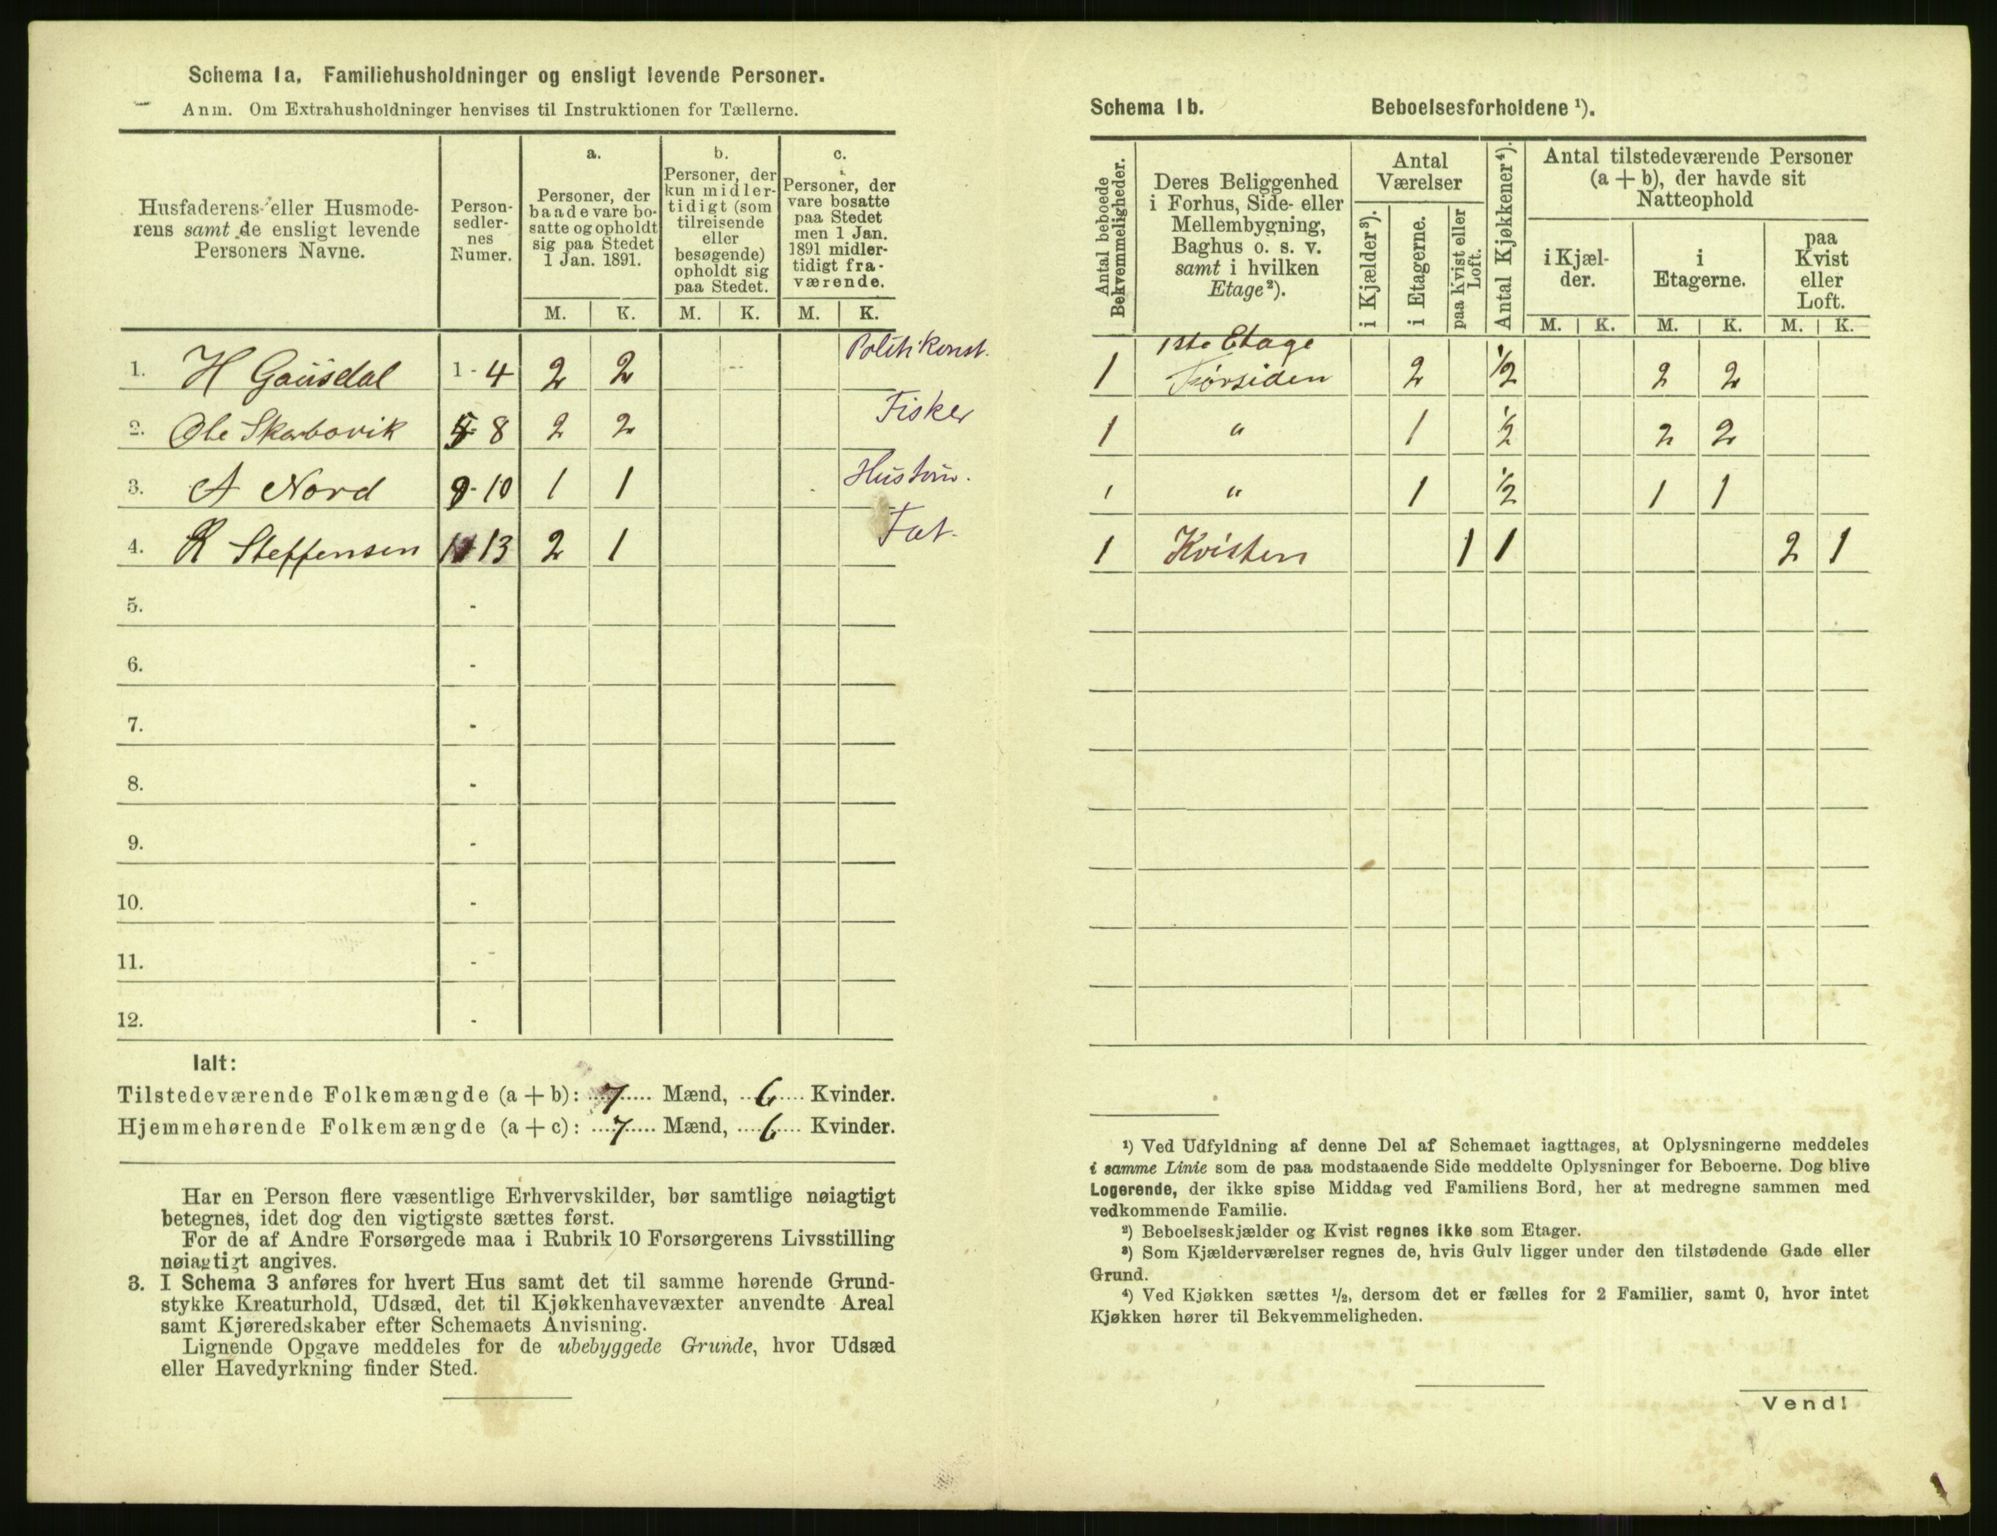 Schema 1a. Familiehusholdninger og ensligt levende Personer.
Anm. Om Extrahusholdninger henvises til Instruktionen for Tællerne.
Husfaderens eller Husmoderens samt de ensligt levende Personers Navne.
Personsedlernes Numer.
a. Personer, der baade vare bosatte og opholdt sig paa Stedet 1 Jan. 1891.
b. Personer, der kun midlertidigt (som tilreisende eller besøgende) opholdt sig paa Stedet.
c. Personer, der vare bosatte paa Stedet men 1 Jan. 1891 midlertidigt fraværende.
M. K. M. K. M. K.
1. H Gausdal 1 - 4 2 2 Politikonst.
2. Ole Skarbøvik 5 - 8 2 2 Fisker
3. A Nord 9 - 10 1 1 Hustøm.
4. R Steffensen 11 13 2 1 Fat.
5. -
6. -
7. -
8. -
9. -
10. -
11. -
12. -
Ialt:
Tilstedeværende Folkemængde (a + b): 7 Mænd, 6 Kvinder.
Hjemmehørende Folkemængde (a + c): 7 Mænd, 6 Kvinder.
Har en Person flere væsentlige Erhvervskilder, bør samtlige nøiagtigt
betegnes, idet dog den vigtigste sættes først.
For de af Andre Forsørgede maa i Rubrik 10 Forsørgerens Livsstilling
nøiagtigt angives.
3. I Schema 3 anføres for hvert Hus samt det til samme hørende Grund-
stykke Kreaturhold, Udsæd, det til Kjøkkenhavevæxter anvendte Areal
samt Kjøreredskaber efter Schemaets Anvisning.
Lignende Opgave meddeles for de ubebyggede Grunde, hvor Udsæd
eller Havedyrkning finder Sted.
Schema 1b. Beboelsesforholdene ¹).
Antal beboede Bekvemmeligheder.
Deres Beliggenhed i Forhus, Side- eller Mellembygning, Baghus o. s. v. samt i hvilken Etage²).
Antal Værelser
i Kjælder³).
i Etagerne.
paa Kvist eller Loft.
Antal Kjøkkener⁴).
Antal tilstedeværende Personer (a + b), der havde sit Natteophold
i Kjælder.
i Etagerne.
paa Kvist eller Loft.
M. K. M. K. M. K.
1 1ste Etage Forsiden 2 1/2 2 2
1 " 1 1/2 2 2
1 " 1 1/2 1 1
1 Kvisten 1 1 2 1
¹) Ved Udfyldning af denne Del af Schemaet iagttages, at Oplysningerne meddeles
i samme Linie som de paa modstaaende Side meddelte Oplysninger for Beboerne. Dog blive
Logerende, der ikke spise Middag ved Familiens Bord, her at medregne sammen med
vedkommende Familie.
²) Beboelseskjælder og Kvist regnes ikke som Etager.
³) Som Kjælderværelser regnes de, hvis Gulv ligger under den tilstødende Gade eller
Grund.
⁴) Ved Kjøkken sættes ½, dersom det er fælles for 2 Familier, samt 0, hvor intet
Kjøkken hører til Bekvemmeligheden.
Vend!